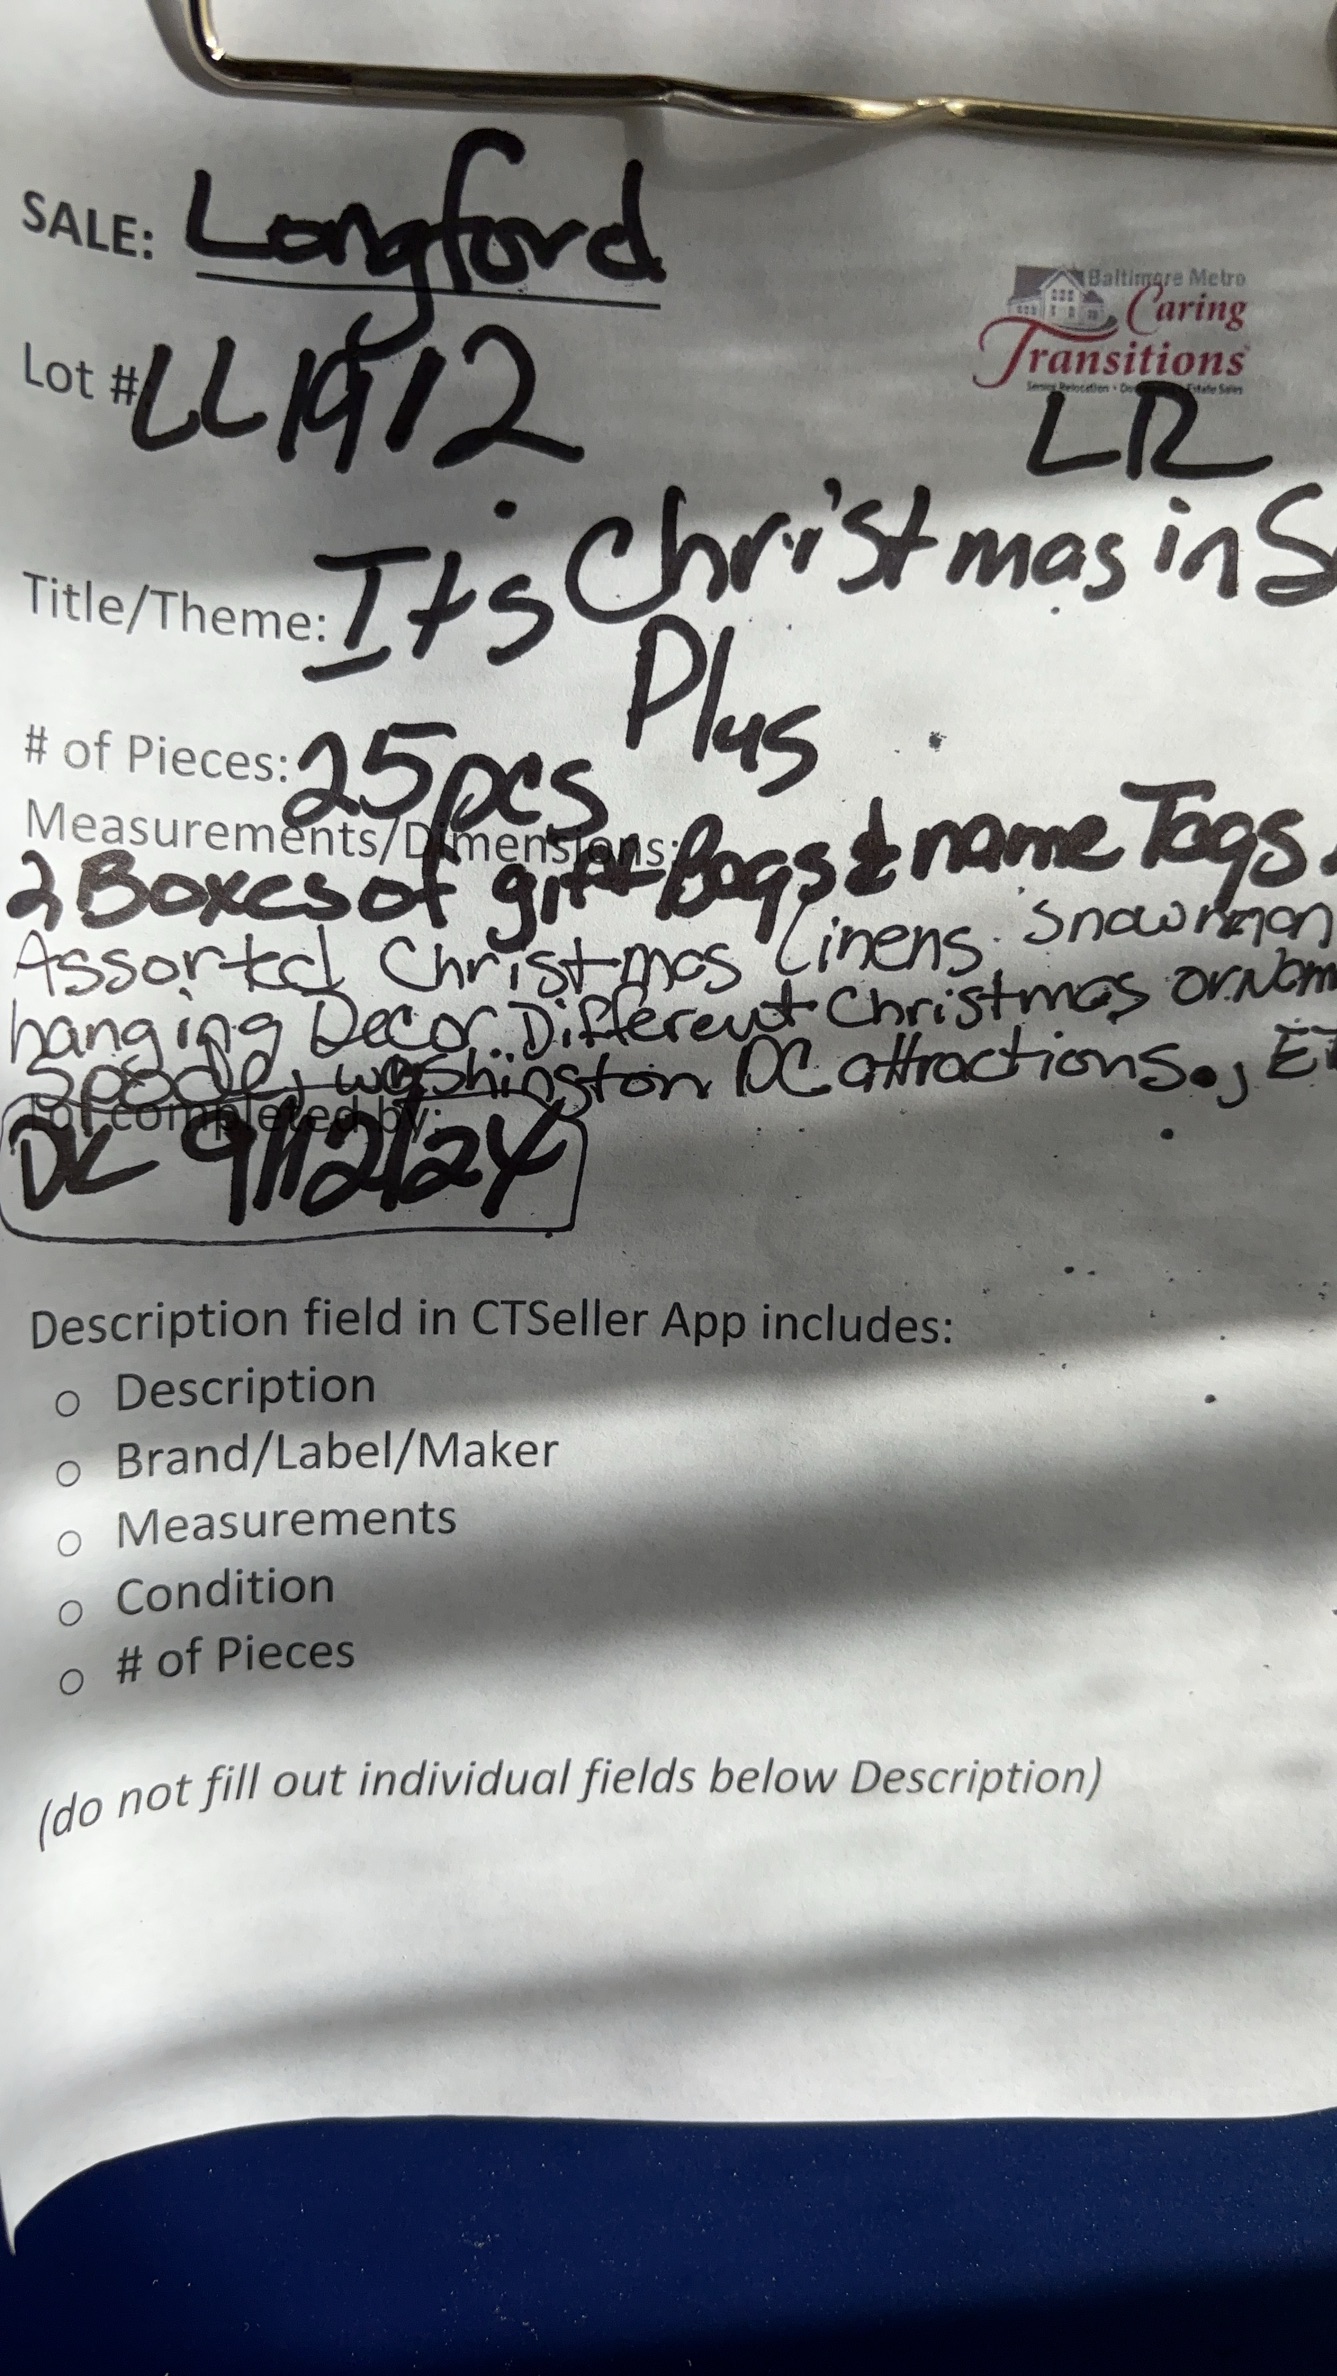 SALE: Longford
Baltimore Metro
Caring
Transitions
Lot # LL1912
LR
Title/Theme: Its Christmas in S
Plus
# of Pieces: 25pcs
Measurements/Dimensions:
2 Boxes of gift Bags & name Tags.
Assorted Christmas Linens. Snowman
hanging Decor. Different Christmas ornam
Spode, washington DC attractions.,
Lot completed by:
DC 9/12/24
Description field in CTSeller App includes:
o Description
o Brand/Label/Maker
o Measurements
o Condition
o # of Pieces
(do not fill out individual fields below Description)